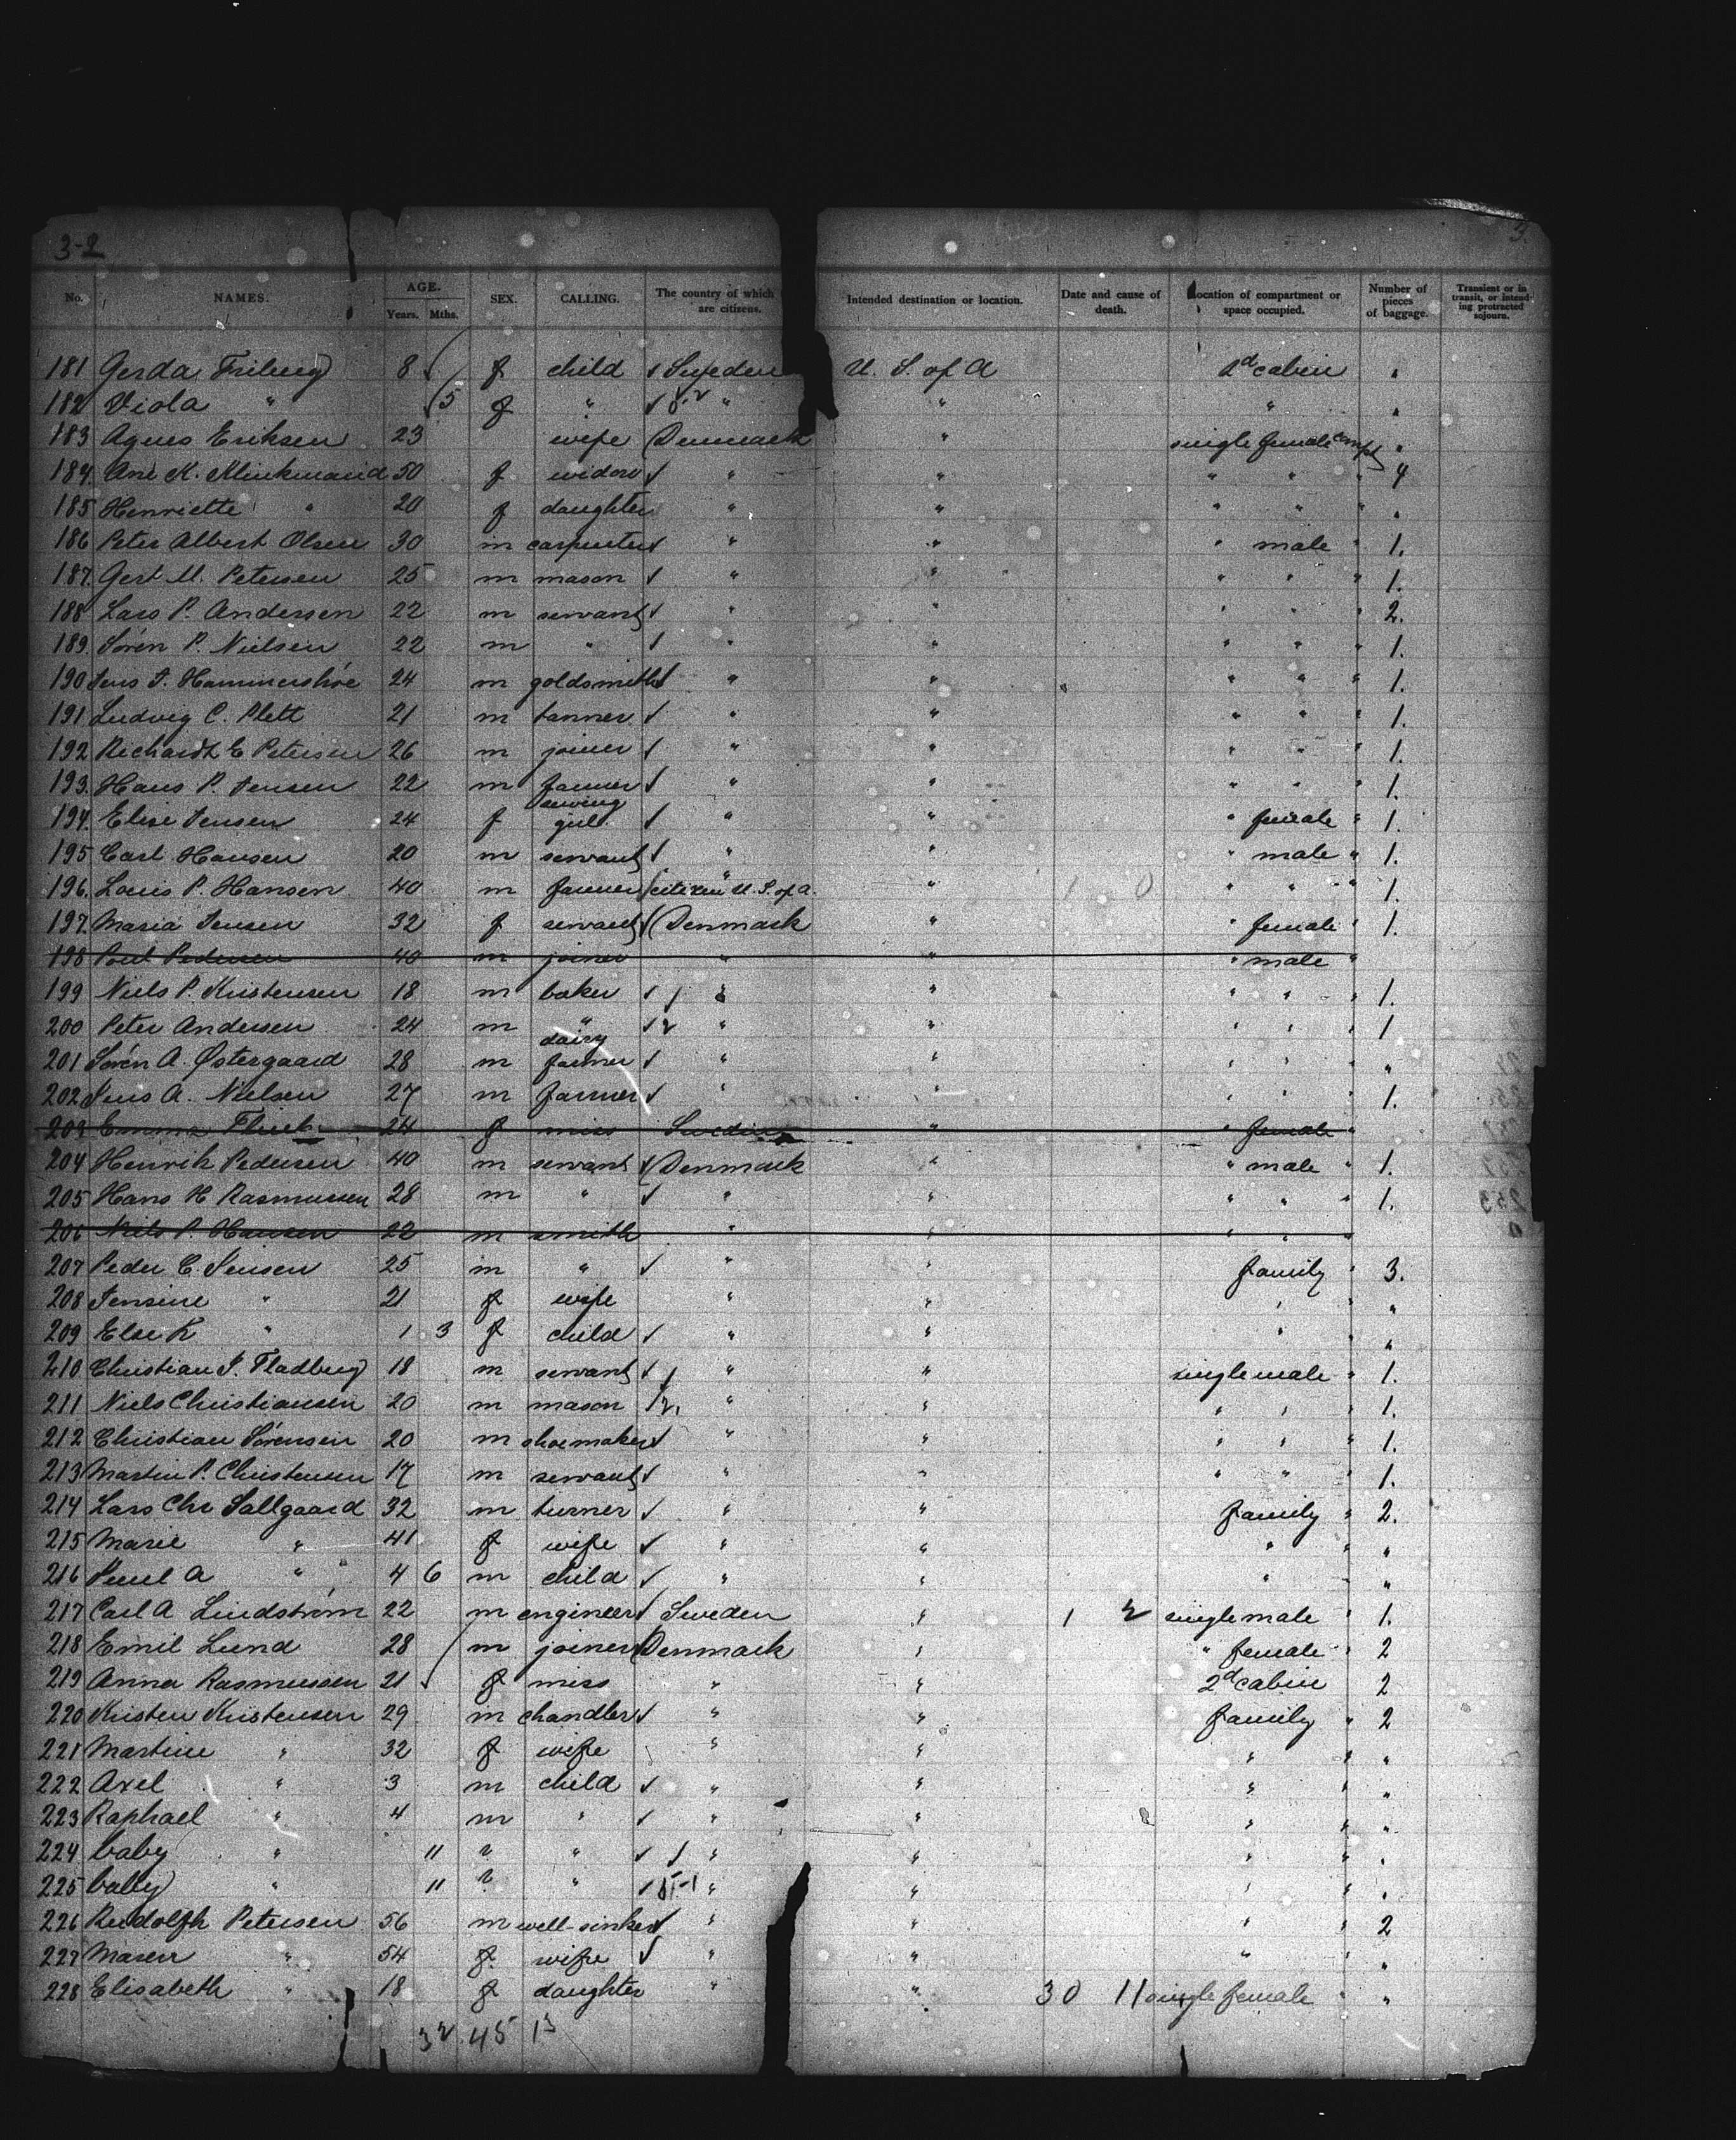 3-2 3
No. NAMES. AGE. Years. Mths. SEX. CALLING. The country of which are citizens. Intended destination or location. Date and cause of death. Location of compartment or space occupied. Number of pieces of baggage. Transient or in transit, or intending protracted sojourn.
181 Gerda Friberg 8 f child Sweden U. S. of A 2d cabin "
182 Viola " 5 f " " " " "
183 Agnes Eriksen 23 wife Denmark " single female compt "
184. Ane K. Klinkmand 50 f widow " " " " " 4
185 Henriette " 20 f daughter " " " " " "
186 Peter Albert Olsen 30 m carpenter " " " male " 1.
187. Gert M. Petersen 25 m mason " " " " " 1.
188 Lars P. Andersen 22 m servant " " " " " 2.
189. Sören P. Nielsen 22 m " " " " " " 1.
190 Jens J. Hammershöe 24 m goldsmith " " " " " 1.
191 Ludvig C. Plett 21 m tanner " " " " " 1.
192 Richardt E Petersen 26 m joiner " " " " 1.
193. Hans P. Jensen 22 m farmer " " " " " 1.
194. Elise Jensen 24 f sewing girl " " " female " 1.
195 Carl Hansen 20 m servant " " " male " 1.
196. Louis P. Hansen 40 m farmer citizen U. S. of a. " 1 0 " " " 1.
197. Maria Jensen 32 f servant Denmark " " female " 1.
198 Poul Pedersen 40 m joiner " " " male "
199 Niels P. Kristensen 18 m baker 1 " " " " " 1.
200 Peter Andersen 24 m " 2 " " " " " 1
201 Sören A. Østergaard 28 m dairy farmer " " " " " "
202 Jens A. Nielsen 27 m farmer " " " " " 1.
203 Emma Flinck 24 f miss Sweden " " female "
204 Henrik Pedersen 40 m servant Denmark " " male " 1.
205 Hans H Rasmussen 28 m " " " " " " 1.
206 Niels P. Hansen 22 m smith " " " " "
207 Peder C. Jensen 25 m " " " family " 3.
208 Jensine " 21 f wife " " " " "
209 Else K " 1 3 f child " " " " "
210 Christian J. Fladberg 18 m servant 1 " " single male " 1.
211 Niels Christiansen 20 m mason 2, " " " " 1.
212 Christian Sörensen 20 m shoemaker " " " " " 1.
213 Martin P. Christensen 17 m servant " " " " " 1.
214 Lars Chr Sallgaard 32 m turner " " family " 2.
215 Marie " 41 f wife " " " " "
216 Poul A " 4 6 m child " " " "
217 Carl A Lindström 22 m engineer Sweden " 1 2 single male " 1.
218 Emil Lund 28 m joiner Denmark " " female " 2
219 Anna Rasmussen 21 f miss " " 2d cabin 2
220 Kristen Kristensen 29 m chandler " " family " 2
221 Martine " 32 f wife " " " " "
222 Axel " 3 m child " " " " "
223 Raphael " 4 m " " " " " "
224 baby " 11 " " " " " " "
225 baby " 11 " " " " " " "
226 Rudolph Petersen 56 m well-sinker " " " " 2
227 Maren " 54 f wife " " " " "
228 Elisabeth " 18 f daughter " " 30 11 single female " "
32 45 13